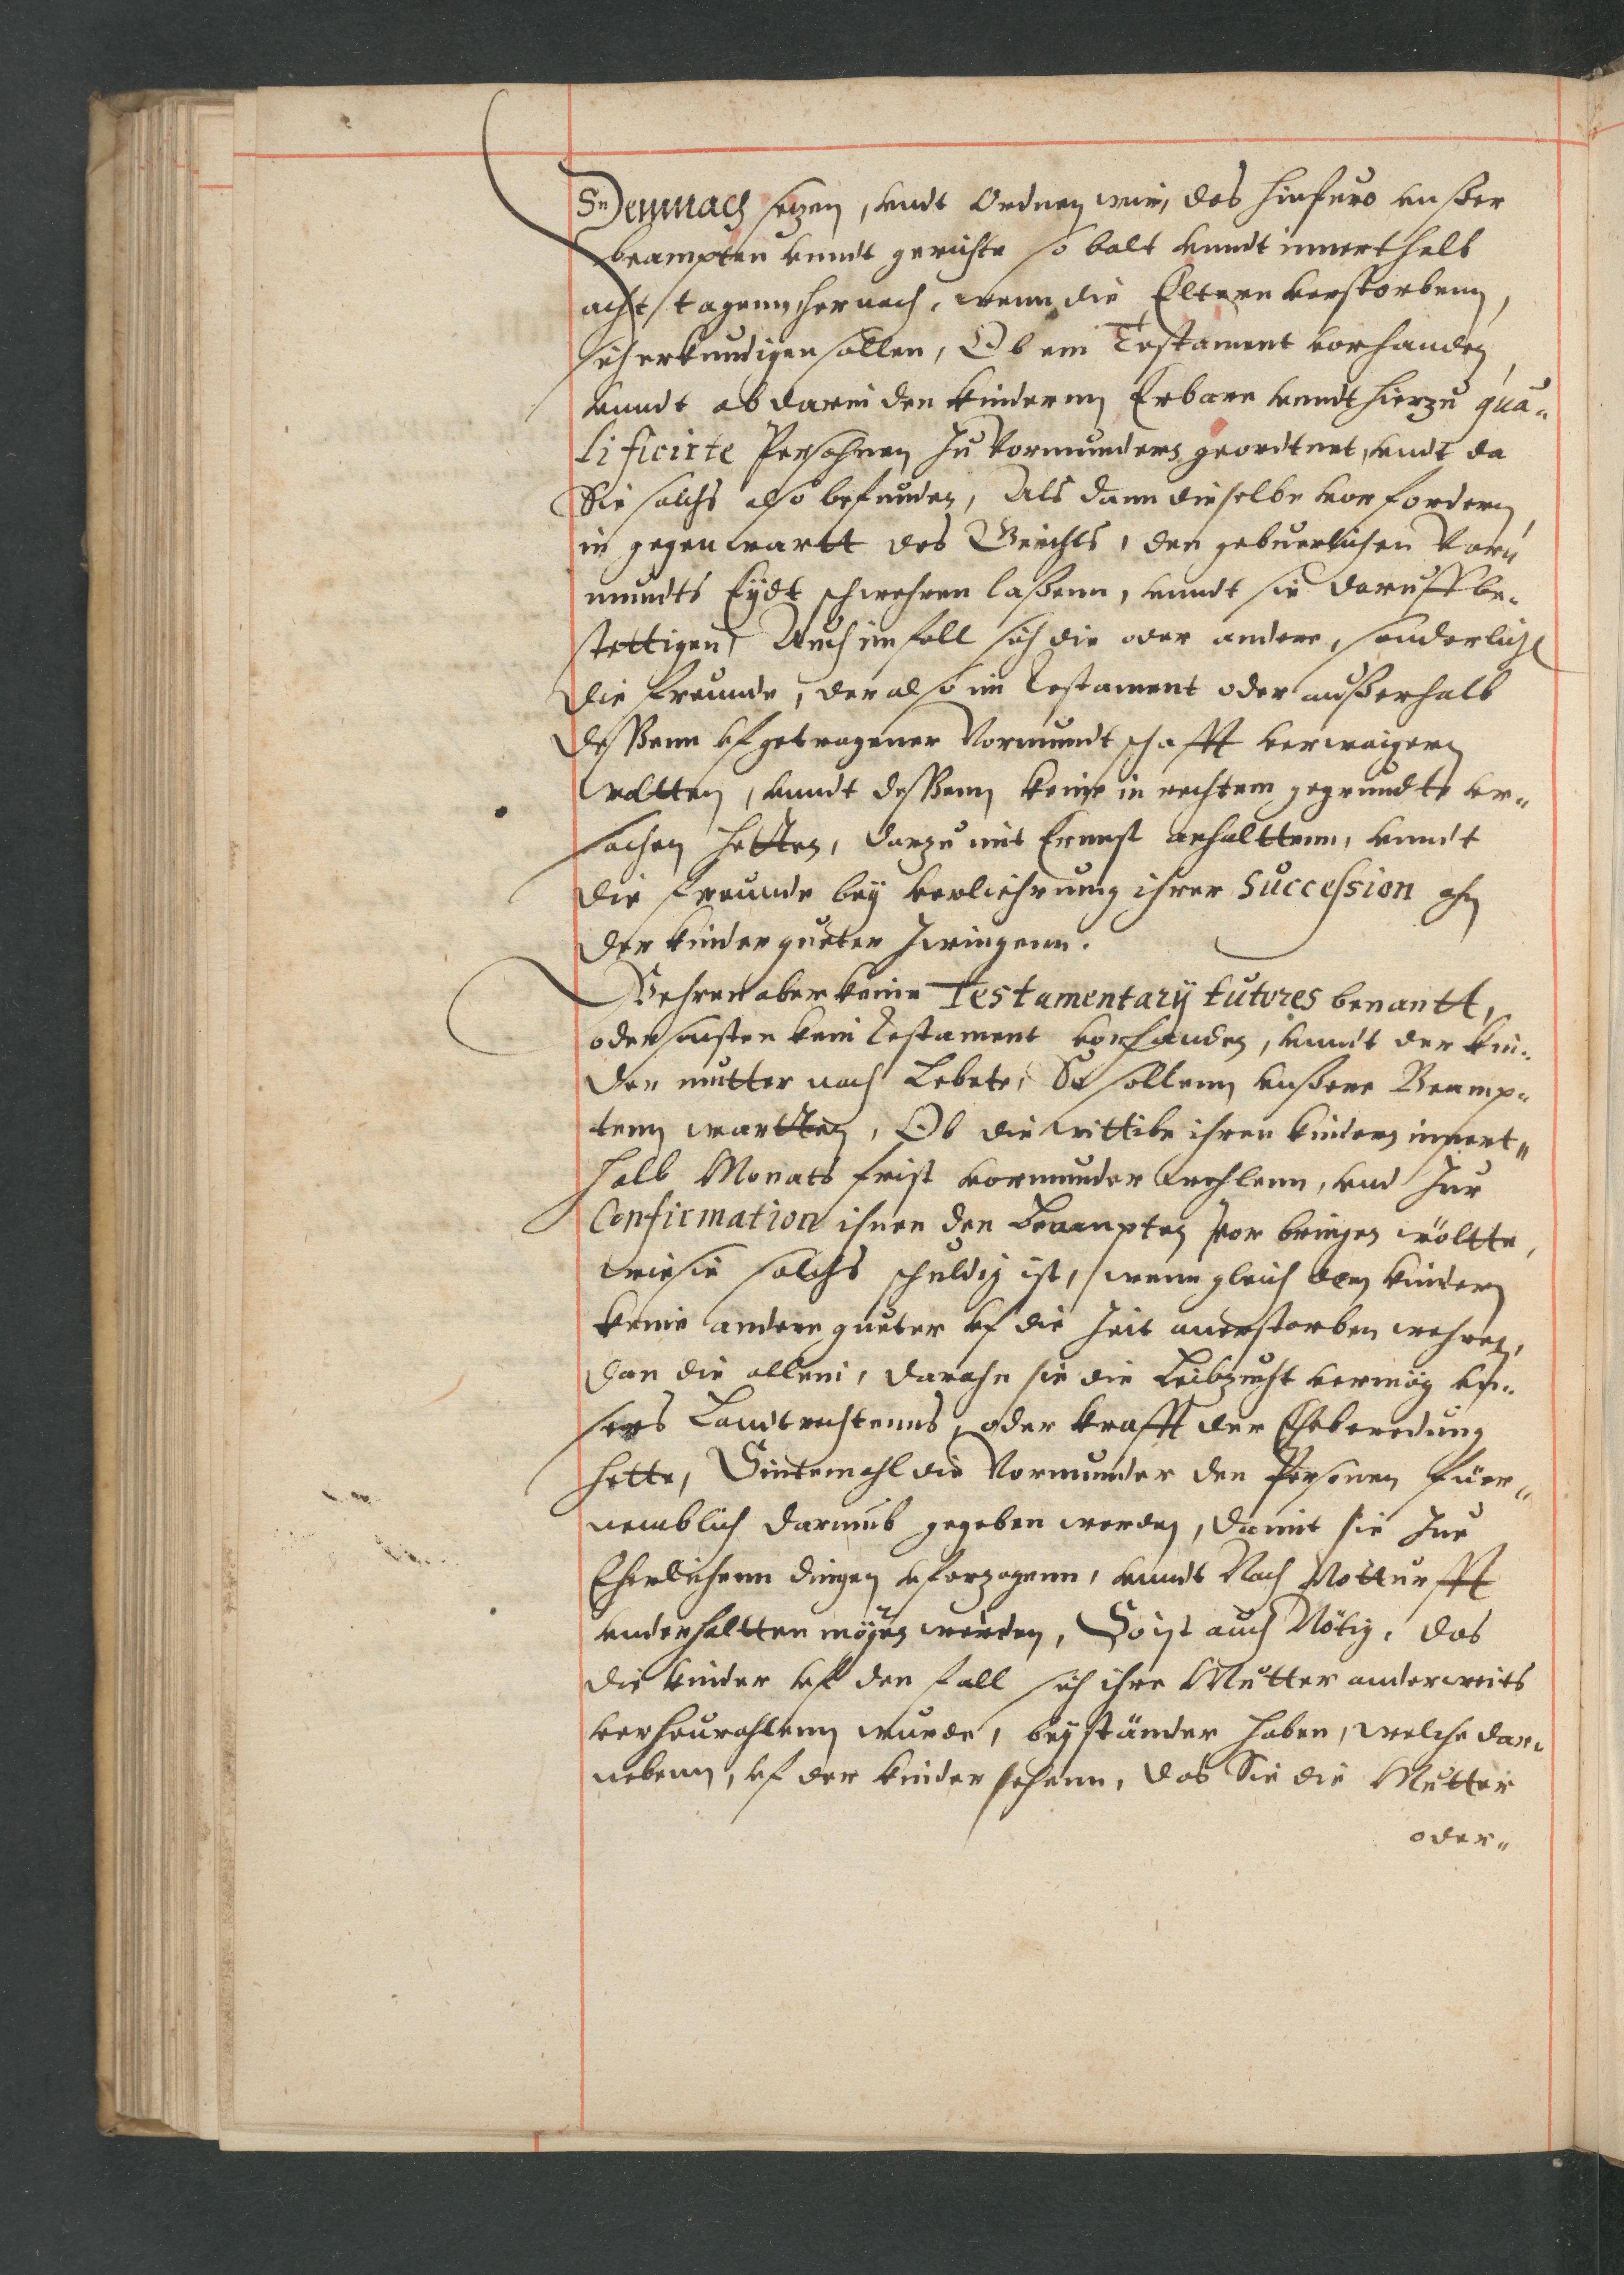 Demnach setzen, vndt Ordnen wir, das hinfuro vnßer
beampten vnndt gerichte so balt vnndt innerthalb
acht tagenn hernach, wenn die Eltern verstorbenn,
sich erkundigen sollen, Ob ein Testament vorhanden,
vnndt ob darin den kindernn Erbare vnndt hierzu qua-
lificirte Persohnen zu Vormundern geordtnet, vndt da
Sie solchs also befunden, Als dann dieselbe vorfordern,
in gegenwartt des Gerichts, den gebuerlichen Vor-
mundts Eydt schwehren laßenn, vnndt sie daruff be-
stettigen, Auch im fall sich die oder andere, sonderlich
die freunde, der also im Testament oder außerhalb
deßenn vfgetragener Vormundtschafft verweigern
woltten, vnndt deßenn keine in rechtem gegrundte vr-
sachen hetten, darzu mit Ernst anhalttenn, vnndt
die freunde bey verliehrung ihrer Succession ahn
der kinder gueter zwingenn.
Wehren aber keine Testamentarij tutores benantt,
oder sonsten kein Testament vorhanden, vnndt der kin-
der mutter noch Lebete, So sollenn vnßere Beamp-
tenn wartten, Ob die wittibe ihren kindern innert-
halb Monats frist vormunder wehlenn, vnd zur
Confirmation ihnen den beampten vor bringen wöltte,
wie sie solchs schuldig ist, wenn gleich den kindern
keine andere gueter vf die zeit anerstorben wehren,
dan die allein, darahn sie die Leibzucht vermög vn-
sers Landtrechtenns, oder krafft der Eheberedung
hette, Sintemahl die Vormunder den Personen füer-
nemblich darumb gegeben werden, damit sie zur
Eherlichenn dingen vferzogenn, vnndt Nach Notturfft
vnderhaltten mögen werden, So ist auch Nötig, das
die kinder vf den fall sich ihre Mutter anderweits
verheurahtenn wurde, beyständer haben, welche dar-
nebenn, vf der kinder sehenn, das Sie die Mutter
oder-